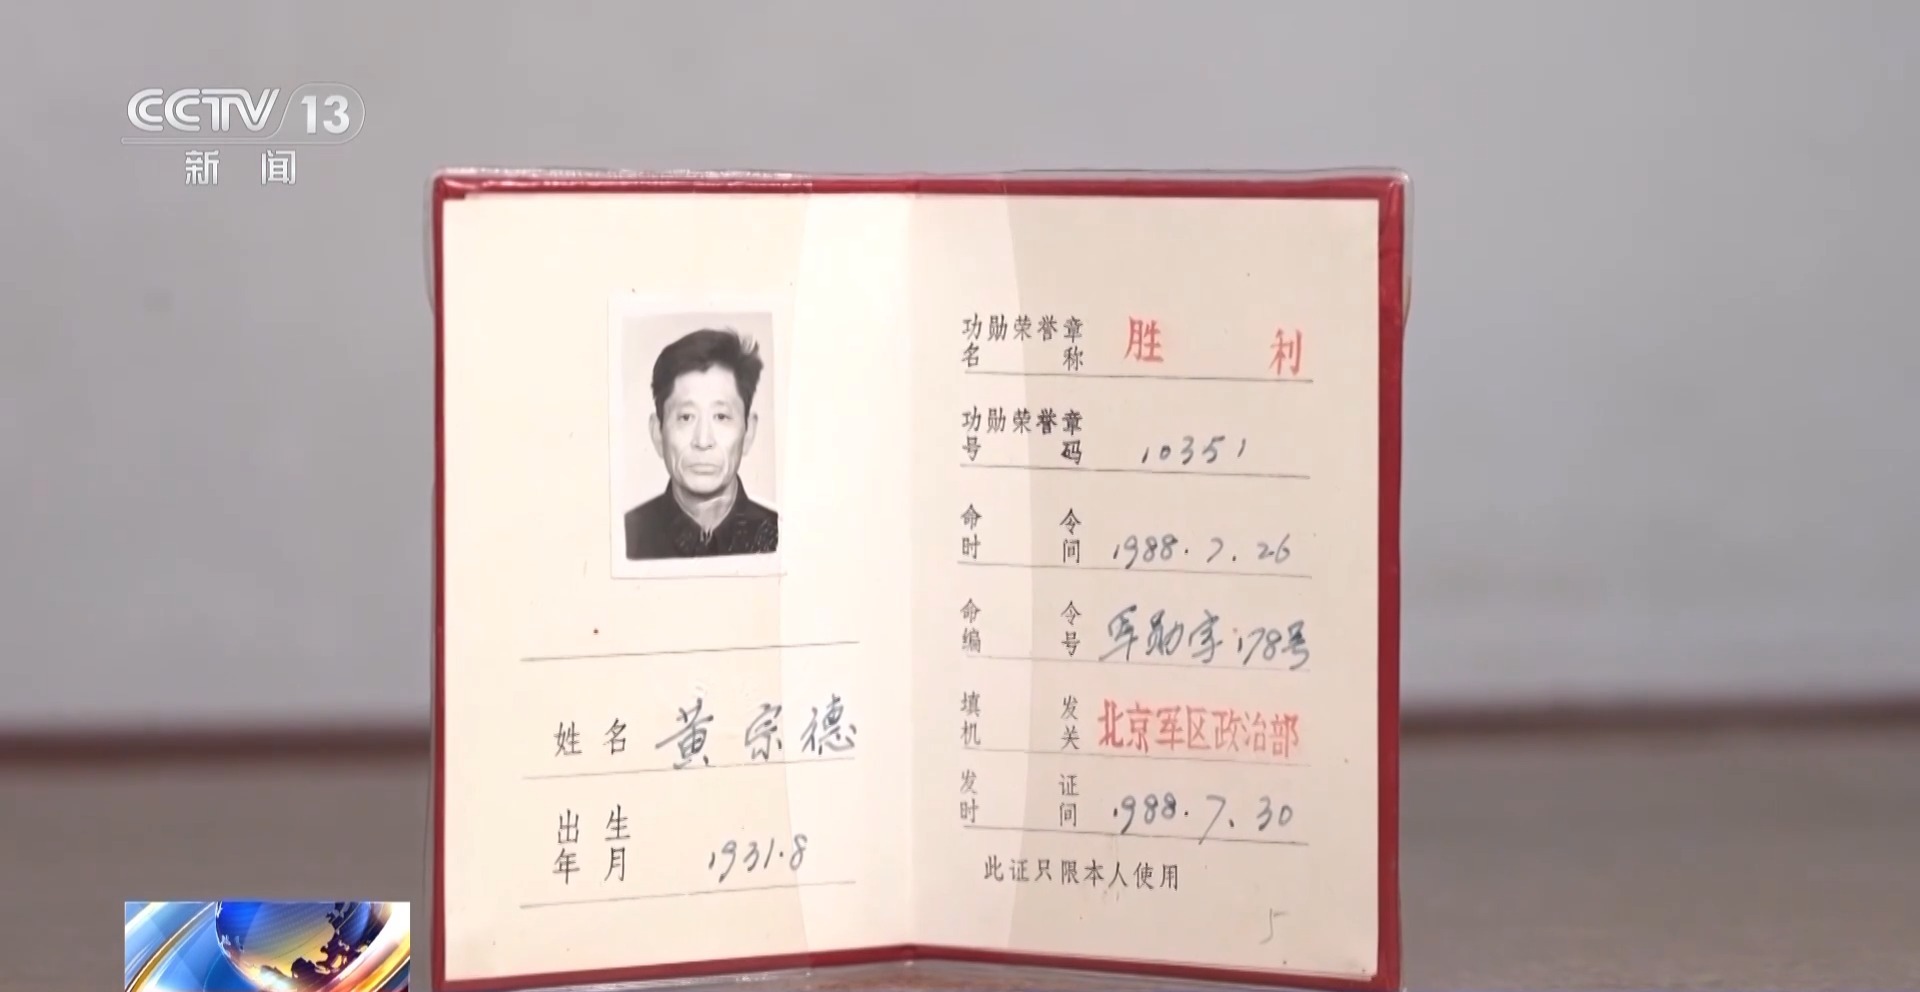 CCTV 13
新闻
姓名 黄宗德
出生
年月 1931.8
功勋荣誉章
名称 胜利
功勋荣誉章
号码 10351
命令
时间 1988.7.26
命令
编号 军勋字178号
填发
机关 北京军区政治部
发证
时间 1988.7.30
此证只限本人使用
5